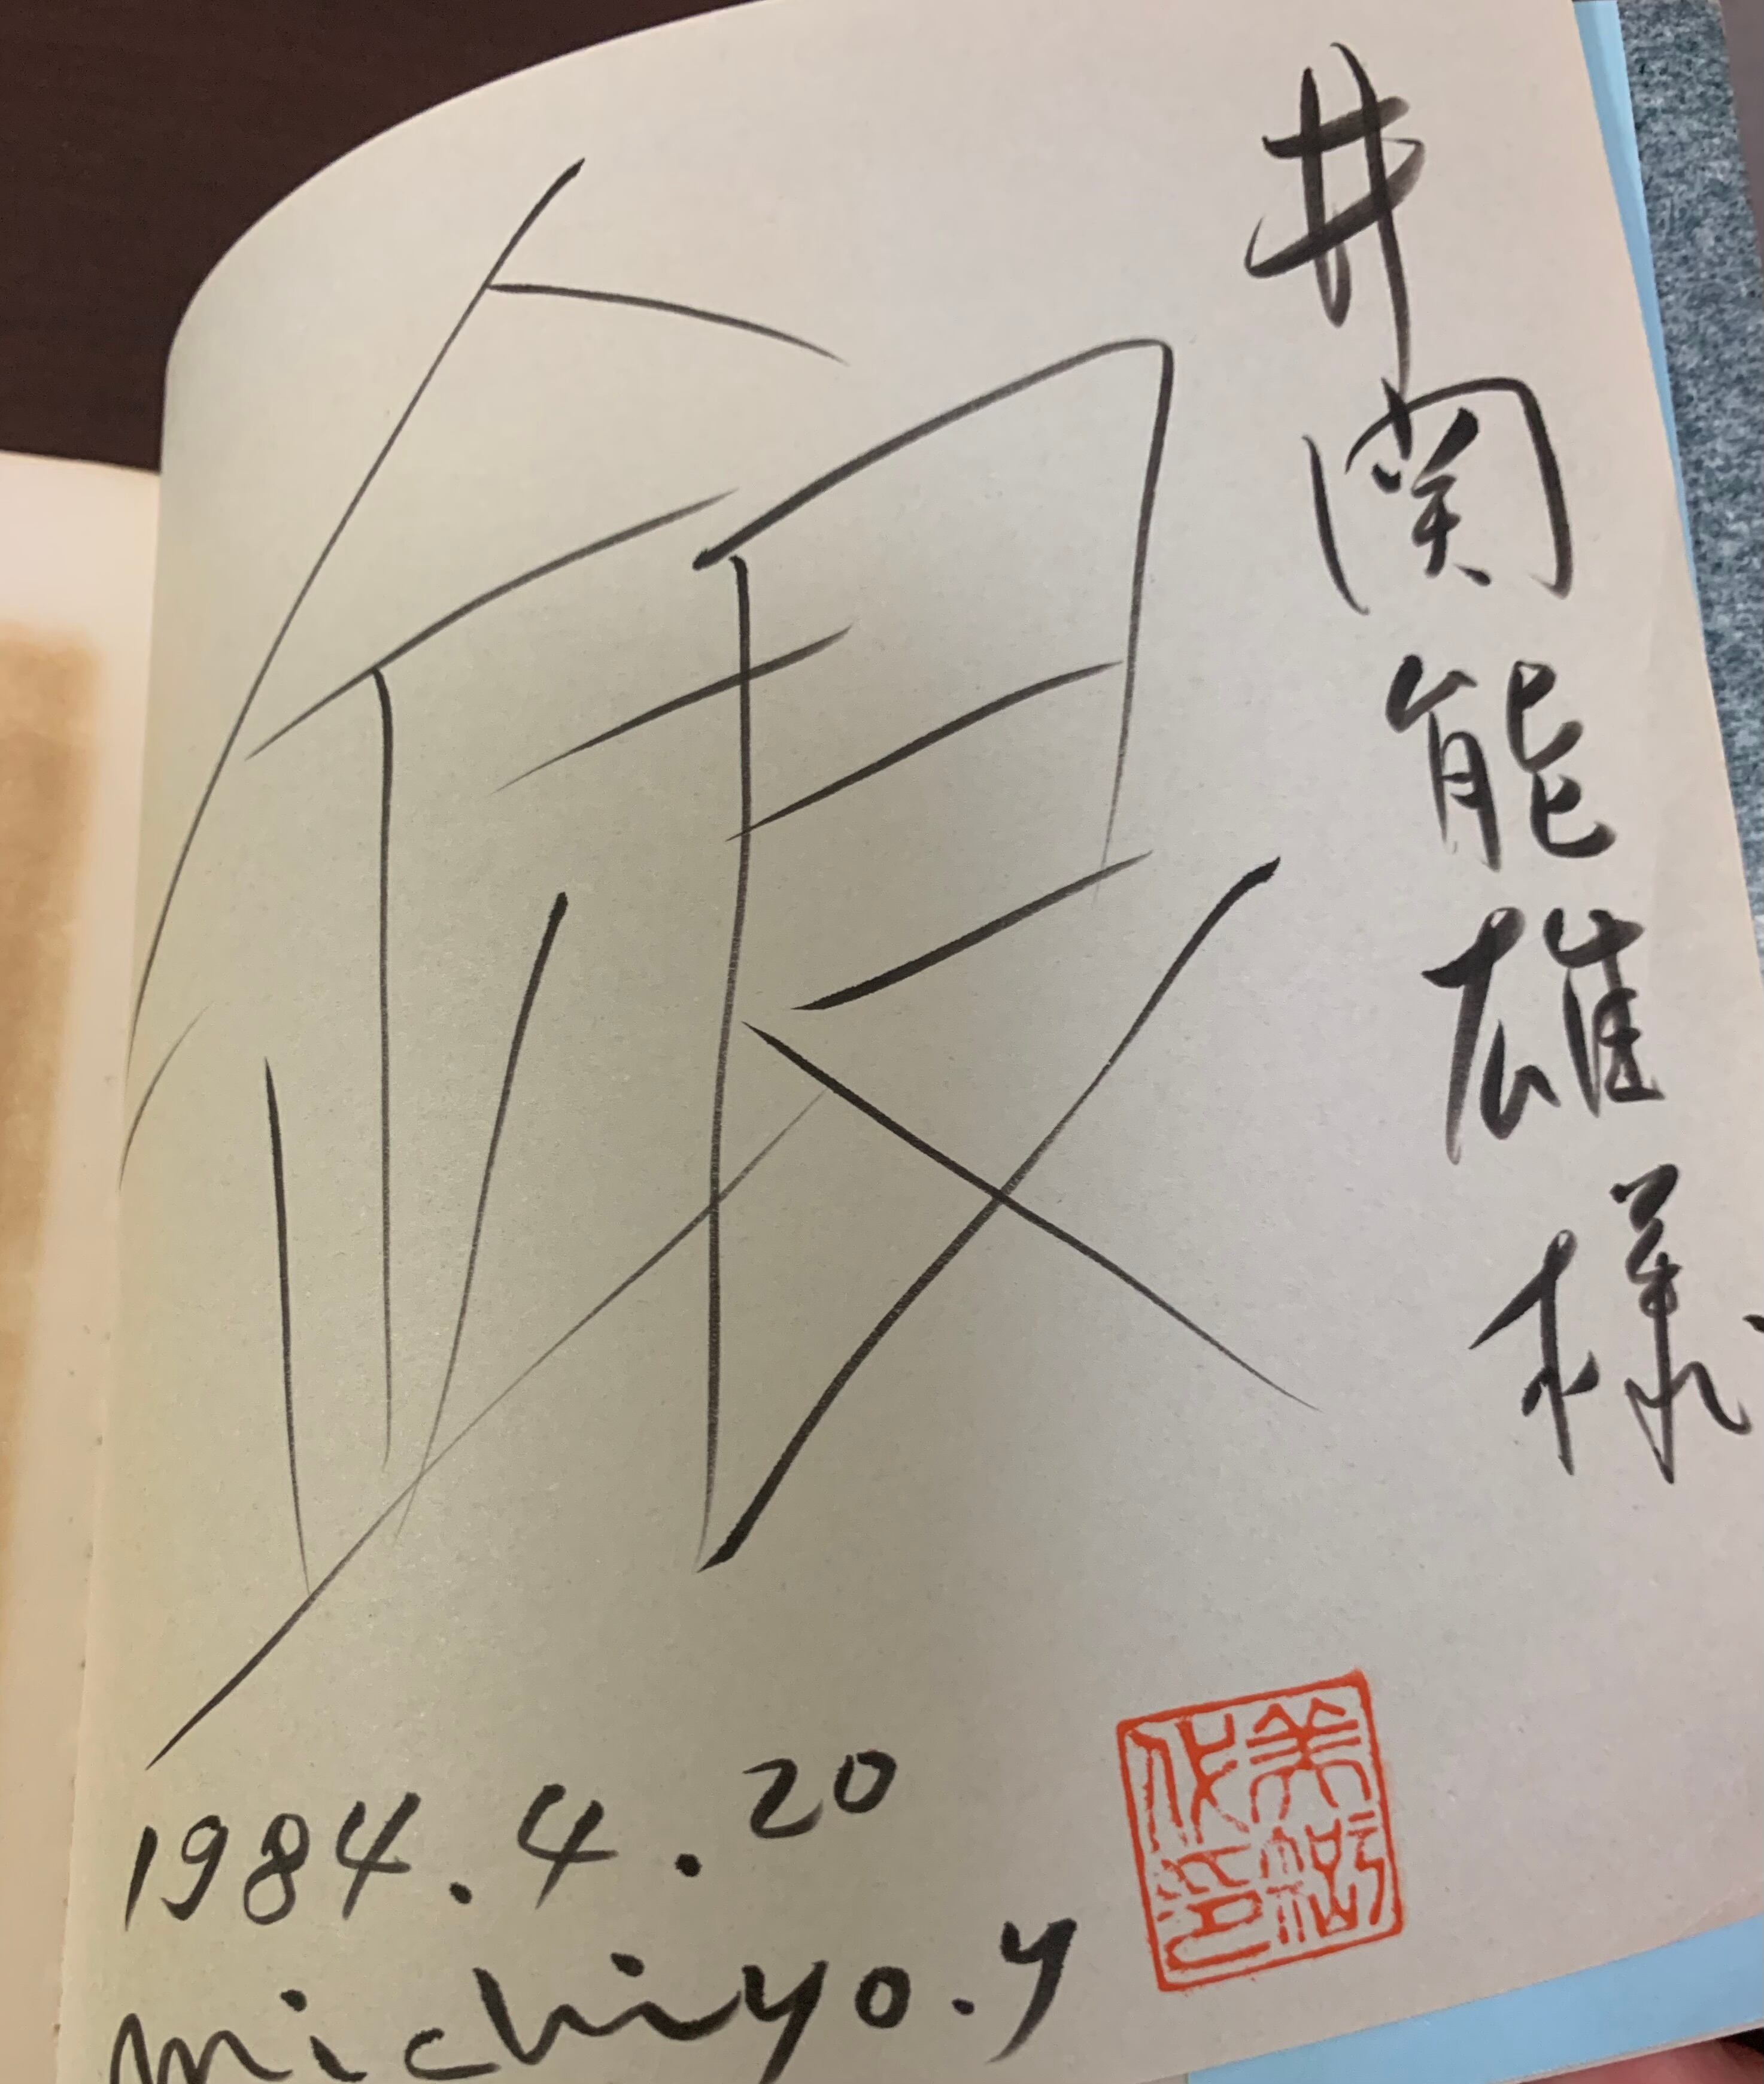 井関能雄様
銀
1984.4.20
Michiyo.y
美智代印